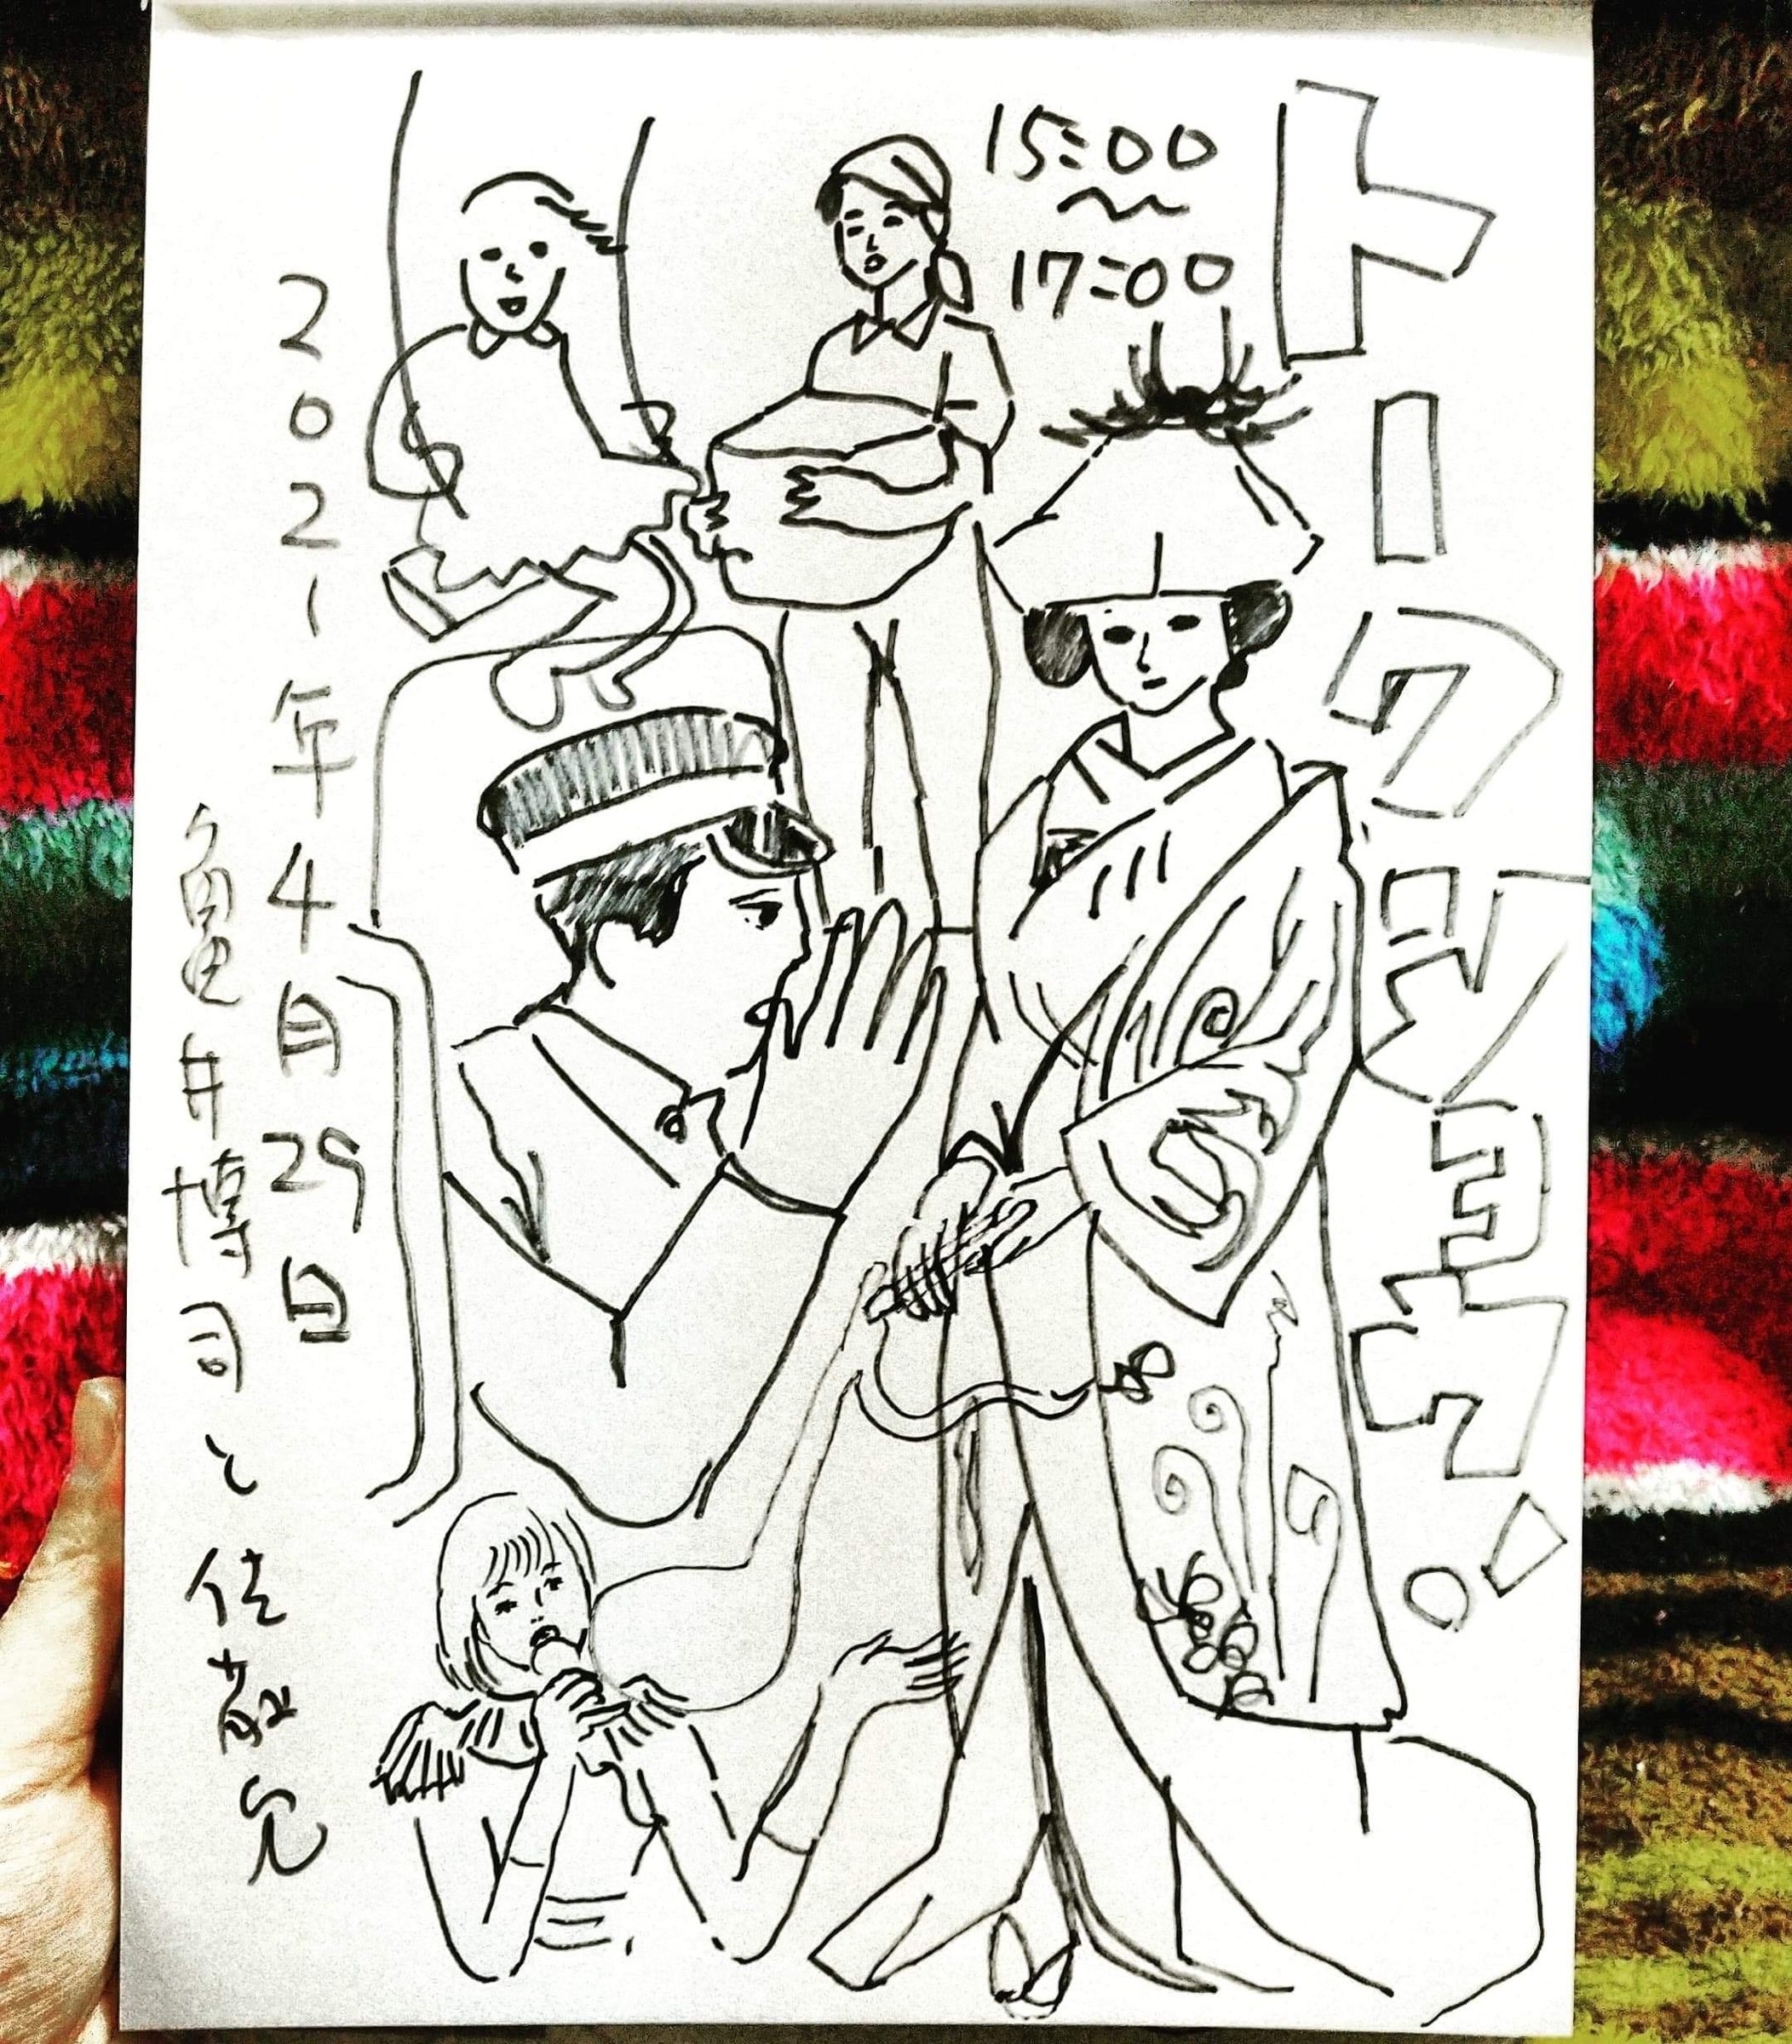 トークショウ!
15:00
〜
17:00
2021年4月29日
亀井博司と